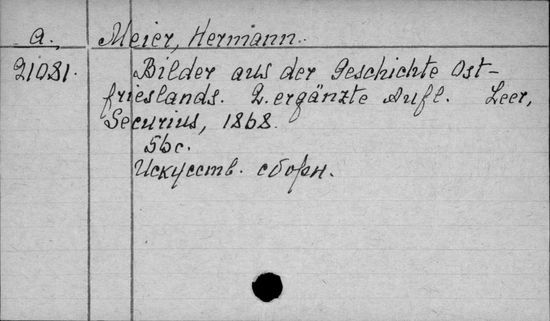 a. Meier, Hermann.
21081. Bilder aus der Geschichte Ost-
frieslands. 2. ergänzte Aufl. Leer,
Securius, 1868.
56 с.
Искусств. сборн.